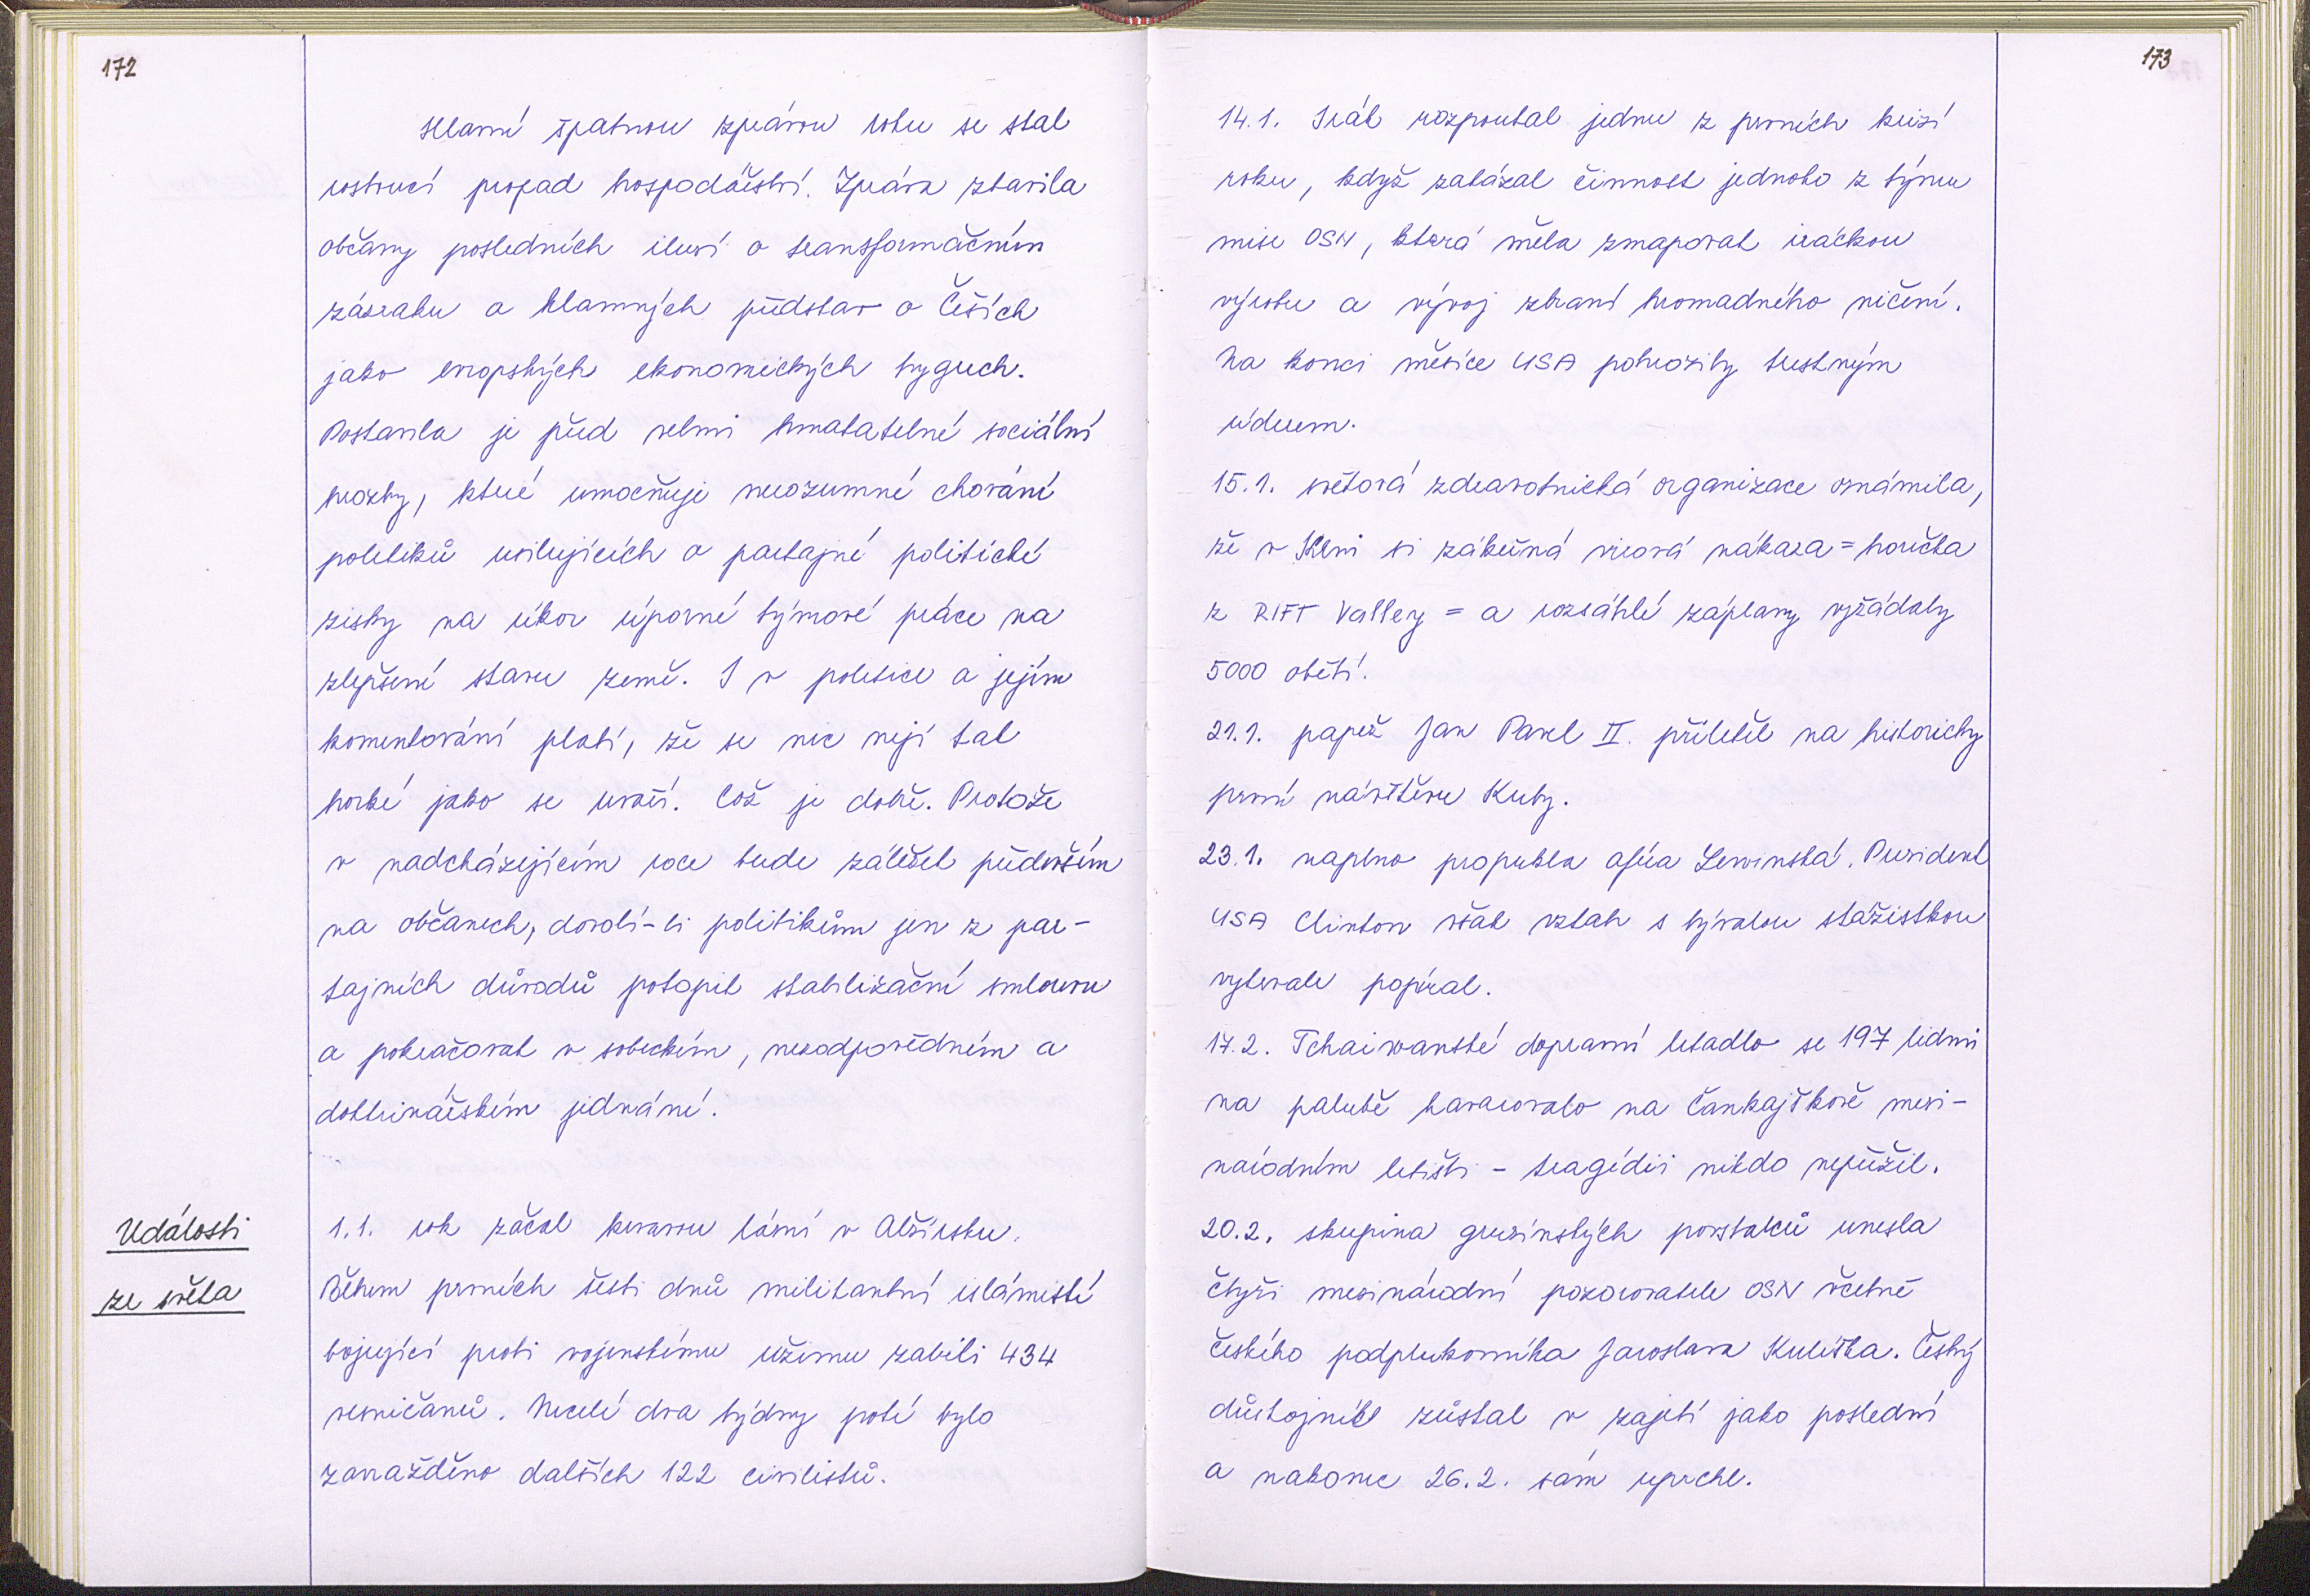 172
Hlavní špatnou zprávou roku se stal
rostoucí propad hospodářství. Zpráva zbavila
občany posledních iluzí o transformačním
zázraku a klamných představ o Češích
jako evropských ekonomických tygrech.
Postavila je před velmi hmatatelné sociální
hrozby, které umocňuje nerozumné chování
politiků usilujících o partajné politické
zisky na úkor úporné týmové práce na
zlepšení stavu země. I v politice a jejím
komentování platí, že se nic nejí tak
horké jako se uvaří. Což je dobře. Protože
v nadcházejícím roce bude záležet především
na občanech, dovolí-li politikům jen z par-
tajních důvodů potopit stabilizační smlouvu
a pokračovat v sobeckém, nezodpovědném a
doktrinářském jednání.
Události
ze světa
1.1. rok začal krvavou lázní v Alžírsku.
Během prvních šesti dnů militantní islámisté
bojující proti vojenskému režimu zabili 434
vesničanů. Necelé dva týdny poté bylo
zavražděno dalších 122 civilistů.
173
14.1. Irák rozpoutal jednu z prvních krizí
roku, když zakázal činnost jednoho z týmu
mise OSN, která měla zmapovat iráckou
výrobu a vývoj zbraní hromadného ničení.
Na konci měsíce USA pohrozily trestným
úderem.
15.1. světová zdravotnická organizace oznámila,
že v Keni si zákeřná virová nákaza = horečka
z RIFT Valley = a rozsáhlé záplavy vyžádaly
5000 obětí.
21.1. papež Jan Pavel II. přiletěl na historicky
první návštěvu Kuby.
23.1. naplno propukla aféra Lewinská. Prezident
USA Clinton však vztah s bývalou stážistkou
vytrvale popíral.
17.2. Tchaiwanské dopravní letadlo se 197 lidmi
na palubě havarovalo na Čankajškově mezi-
národním letišti - tragédii nikdo nepřežil.
20.2. skupina gruzínských povstalců unesla
čtyři mezinárodní pozorovatele OSN včetně
českého podplukovníka Jaroslava Kulíška. Český
důstojník zůstal v zajetí jako poslední
a nakonec 26.2. sám uprchl.